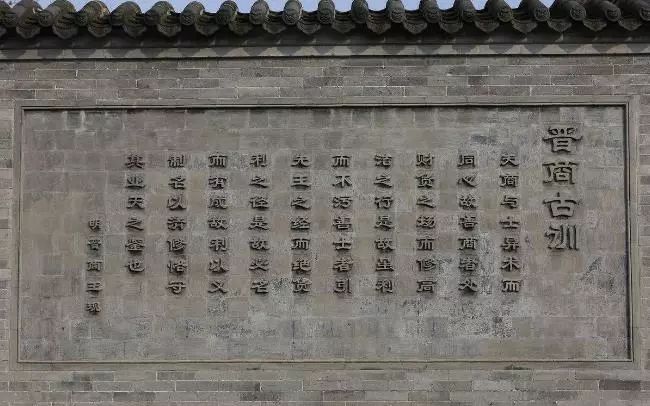 晋商古训
夫商与士异术而
同心故善商者处
财货之场而修高
洁之行是故虽利
而不污善士者引
先王之经而绝货
利之径是故必名
而有成故利以义
制名以清修恪守
其业天之鉴也
明晋商王现